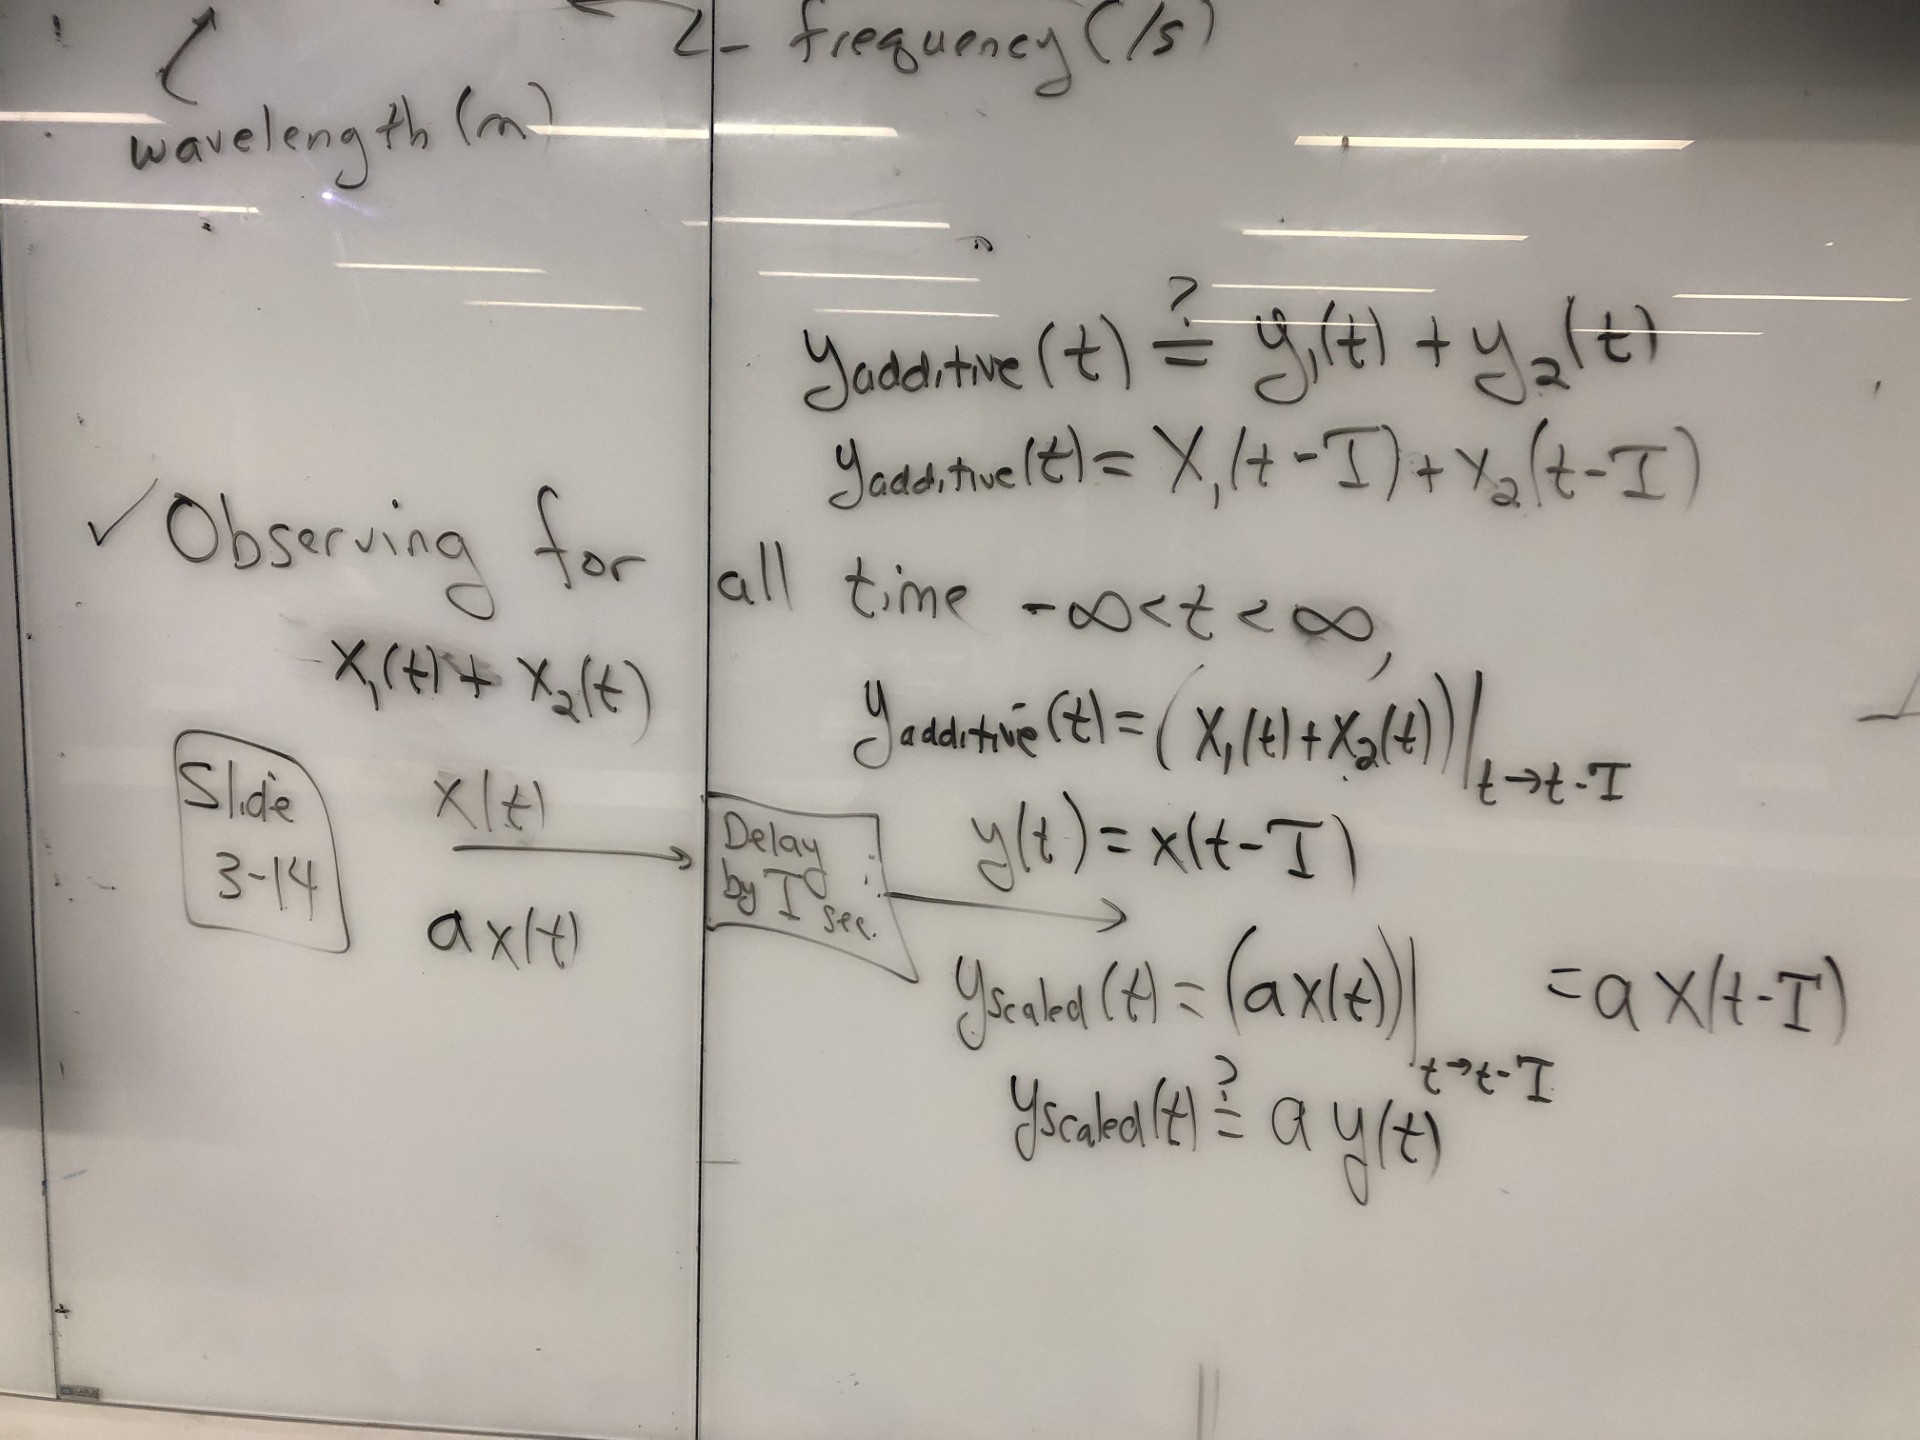 frequency (/s)
wavelength (m)
yadditive(t) ?= y₁(t) + y₂(t)
yadditive(t) = x₁(t-T) + x₂(t-T)
✓ Observing for all time -∞<t<∞,
x₁(t) + x₂(t)
yadditive(t) = (x₁(t)+x₂(t))|t→t-T
Slide
3-14
x(t)
Delay
by T sec.
y(t) = x(t-T)
ax(t)
yscaled(t) = (ax(t))|t→t-T = ax(t-T)
yscaled(t) ?= a y(t)